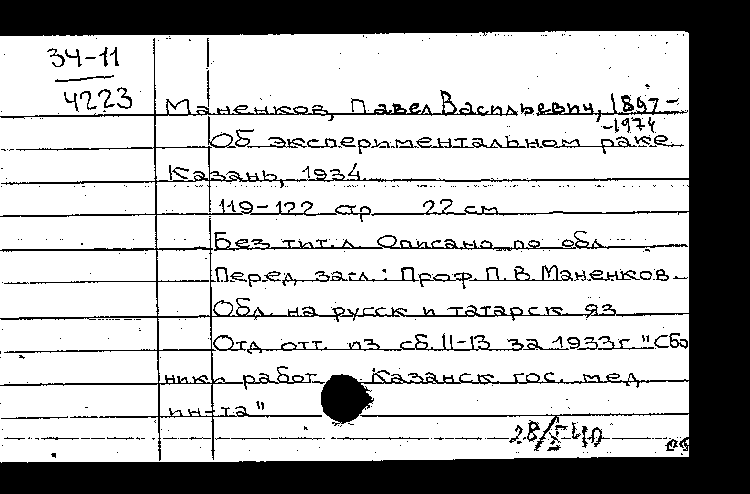 34-11
4223
Маненков, Павел Васильевич, 1897-
-1974
Об экспериментальном раке
Казань, 1934
119-122 стр 22 см
Без тит. л. Описано по обл
Перед загл.: Проф. П. В. Маненков.
Обл. на русск и татарск яз
Отд отт. из сб. II-13 за 1933г. "Сбо
ники работ Казанск гос. мед
ин-та"
28/X 40